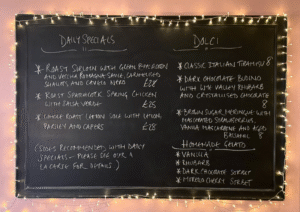 DAILY SPECIALS
* ROAST SIRLOIN WITH GREEN PEPPERCORN
AND SAUCE, CARAMELISED
SHALLOTS AND CAVOLO NERO £28
* ROAST SPATCHCOCK SPRING CHICKEN
WITH SALSA VERDE £25
* WHOLE ROAST LEMON SOLE WITH LEMON,
PARSLEY AND CAPERS £28
(SIDES RECOMMENDED WITH DAILY
SPECIALS - PLEASE SEE OUR A
LA CARTE FOR DETAILS.)
DOLCI
* CLASSIC ITALIAN TIRAMISU 8
* DARK CHOCOLATE BUDINO
WITH WYE VALLEY RHUBARB
AND CRYSTALLISED CHOCOLATE
8
* BROWN SUGAR MERINGUE WITH
MACERATED STRAWBERRIES,
VANILLA MASCARPONE AND AGED
BALSAMIC 8
HOMEMADE GELATO
* VANILLA
* RHUBARB
* DARK CHOCOLATE SORBET
* CHERRY SORBET